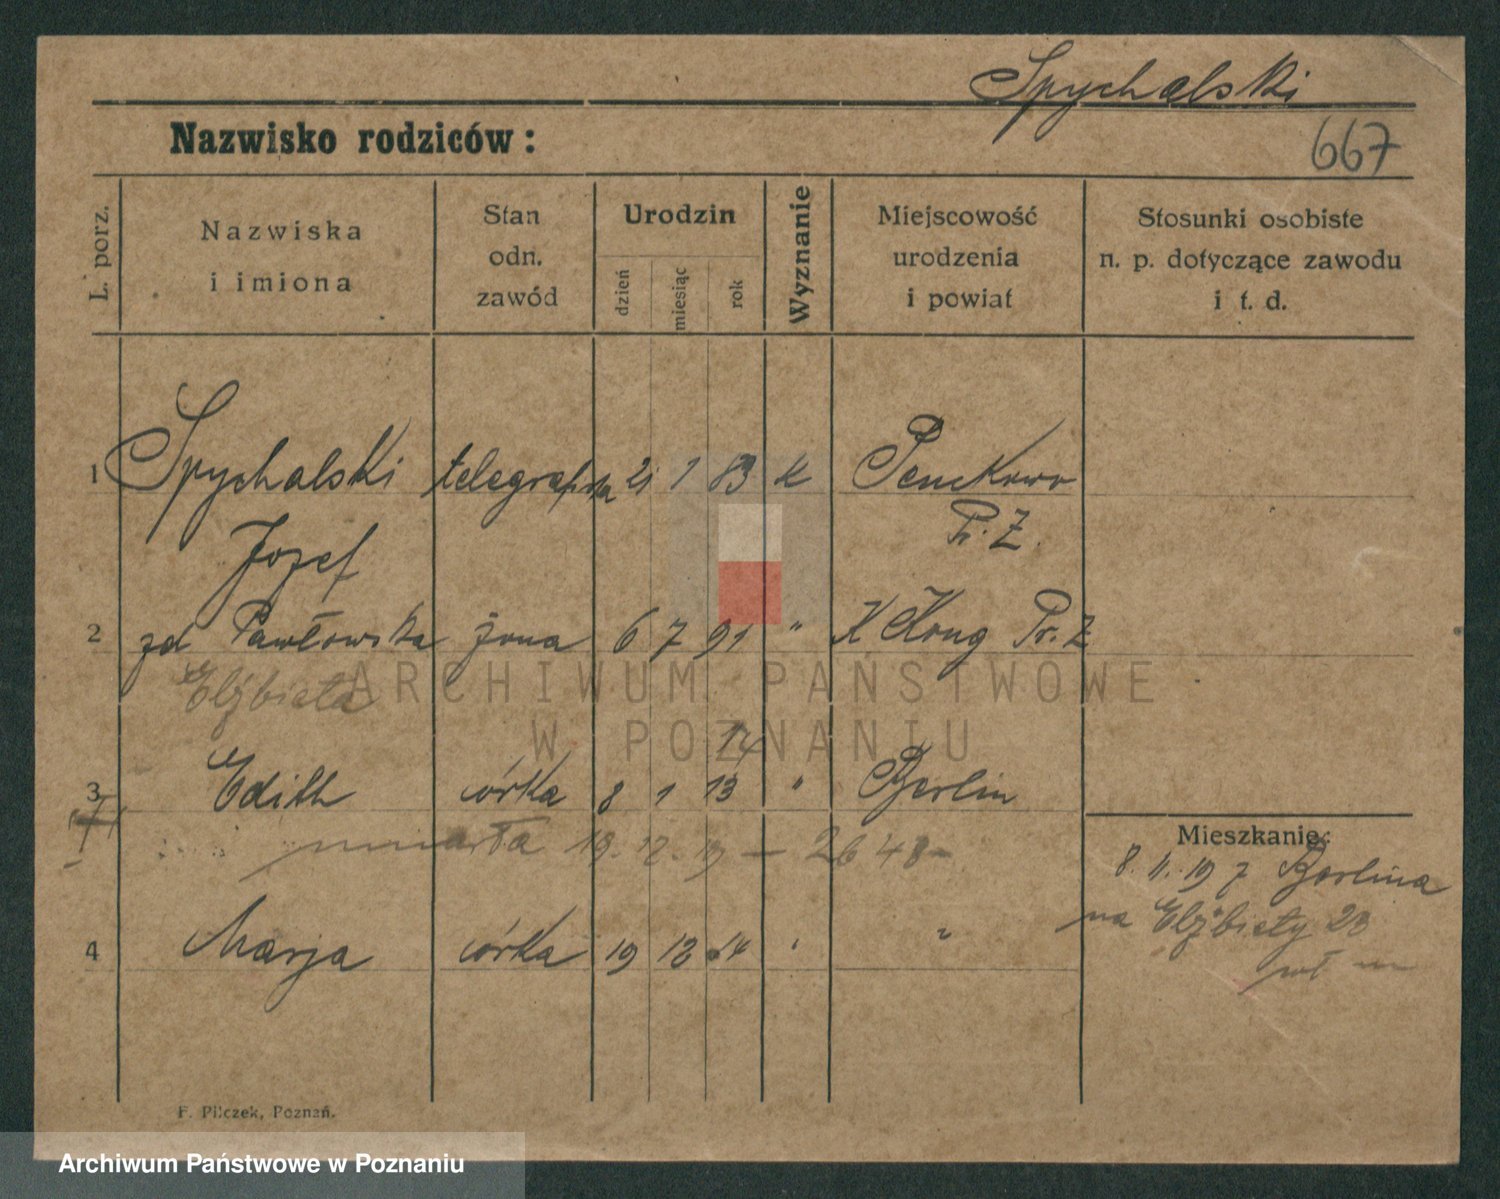 Spychalski
Nazwisko rodziców:
667
L. porz.
Nazwiska
i imiona
Stan
odn.
zawód
Urodzin
dzień
miesiąc
rok
Wyznanie
Miejscowość
urodzenia
i powiat
Stosunki osobiste
n. p. dotyczące zawodu
i t. d.
1 Spychalski 21 1 83 k
Józef Pr. Z.
2 zd Pawłowska żona 6 7 91 " Pr. Z
Elżbieta
ARCHIWUM PAŃSTWOWE
W POZNANIU
14
3 Edith córka 8 1 13 " Berlin
umarła 19. 12. 19 — 2648 —
Mieszkanie:
8. 11. 19 z Berlina
na Elżbiety 23
4 Marja córka 19 12 14 " "
F. Pilczek, Poznań.
Archiwum Państwowe w Poznaniu